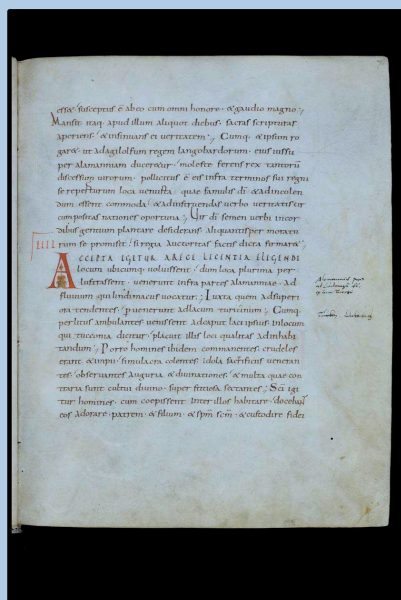 esset· susceptus ē abeo cum omni honore· & gaudio magno;
Mansit itaq; apud illum aliquot diebus· sacras scripturas
aperiens· & insinuans ei veritatem; Cumq; & ipsum ro
gar& ut ad agilolfum regem langobardorum· eius iussu
per alamanniam duceretur· moleste ferens rex tantorū
discessum virorum· pollicitus ē eis infra terminos sui regni
se reperturum loca venusta· quae famulis dī· & ad incolen
dum essent commoda· & ad instruendas verbo veritatis cir
cumpositas nationes oportuna; Cur dī semen verbi incor
dibus gentium plantare desiderans aliquantisper moratu
rum se promisit· si regia auctoritas factis dicta firmar&;
IIII ACCEPTA IGITUR A REGE LICENTIA ELIGENDI
locum ubicumq; voluissent· dum loca plurima per
lustrassent· venerunt infra partes alamanniae· ad
fluvium qui lindimacus vocatur; Iuxta quem ad superi
ora tendentes· pervenerunt ad lacum turicinum; Cumq;
per litus ambulantes venissent ad caput lacus ipsius in locum
qui tuccinia dicitur· placuit illis loci qualitas ad inhabi
tandum; Porro homines ibidem commanentes crudeles
erant & impii· simulacra colentes· idola sacrificiis veneran
tes· observantes auguria & divinationes· & multa quae con
traria sunt cultui divino· superstitiosa sectantes; Sc̄i igi
tur homines· cum coepissent inter illos habitare· docebant
eos adorare patrem· & filium· & sp̄m sc̄m· & custodire fidei